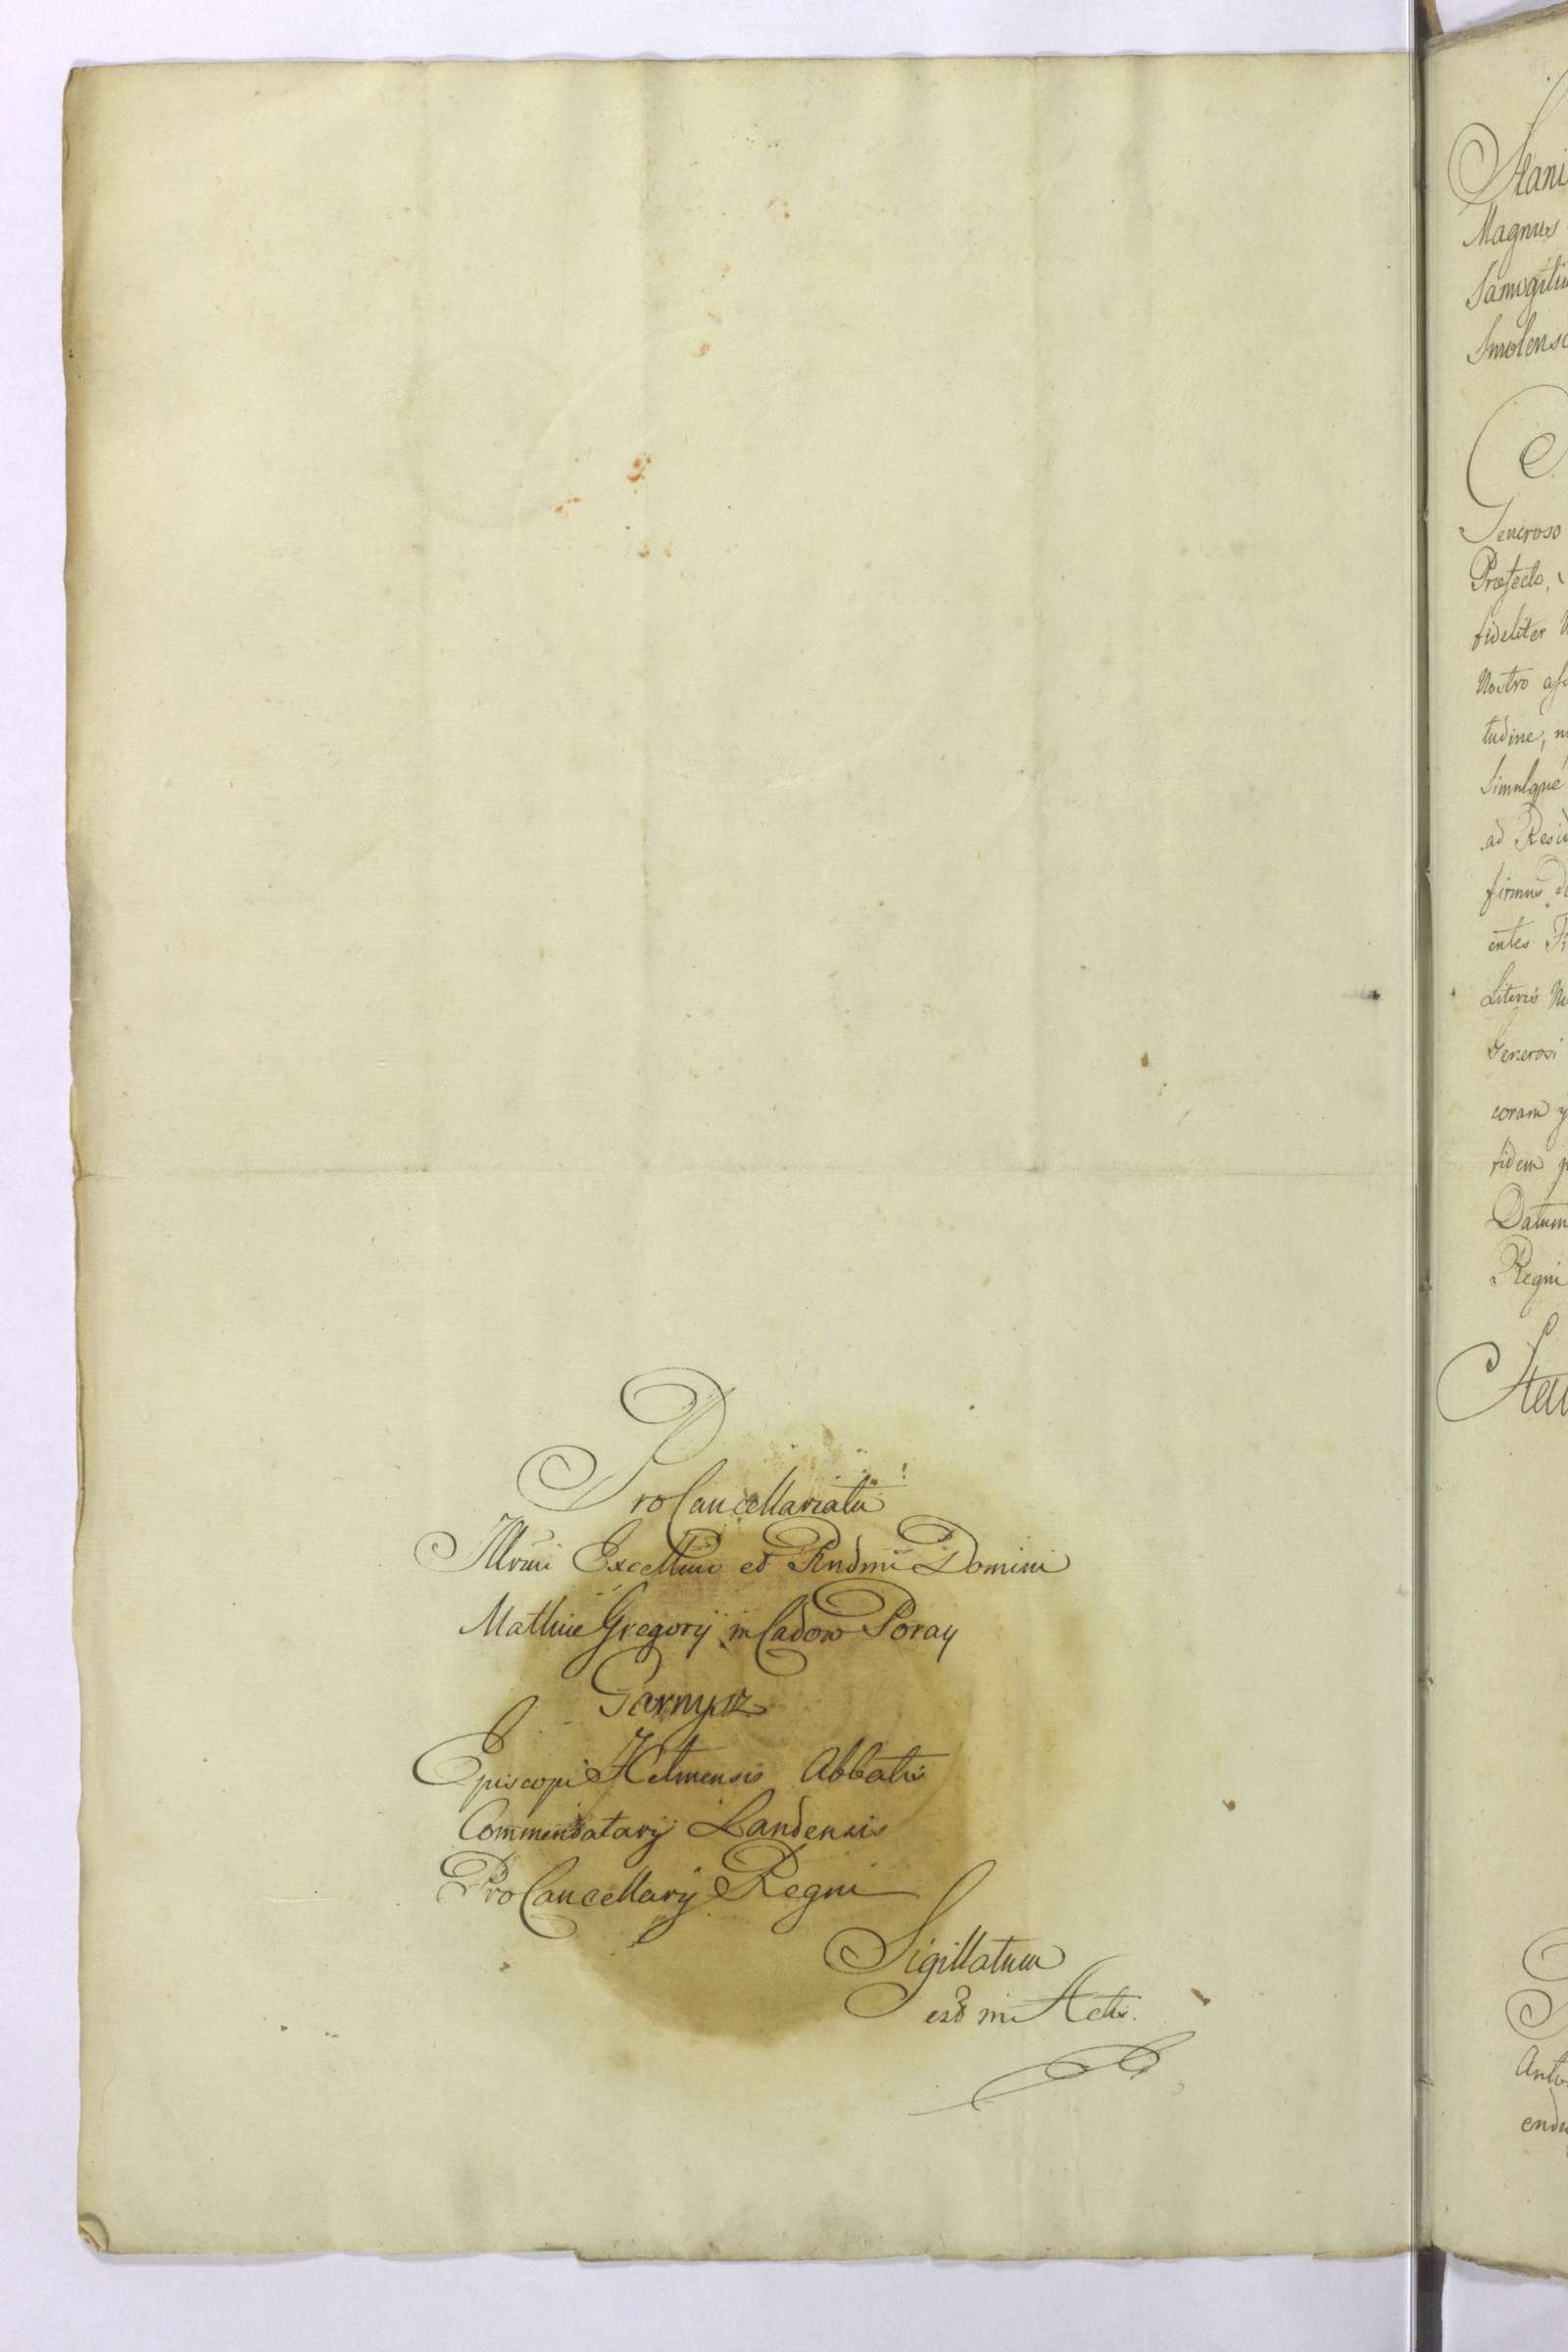 ProCancellariatu
Illrmi Excellmi et Rndmi Domini
Mathiæ Gregorij in Cadow Poray
Garnysz
Episcopi Helmensis Abbatis
Commendatarij Landensis
ProCancellarij Regni
Sigillatum
est in Actis.
Stani
Magnus
Samogitiæ
Smolensc
Generoso
Præfecto,
fideliter
Nostro
tudine,
Simulque
ad Resid
firmus
entes
Literis
Generosi
coram
fidem
Datum
Regni
Anto